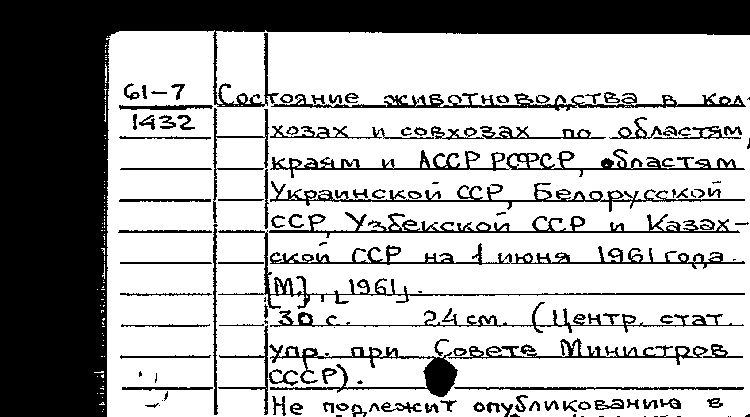 61-7 Состояние животноводства в кол-
1432 хозах и совхозах по областям,
краям и АССР РСФСР, областям
Украинской ССР, Белорусской
ССР, Узбекской ССР и Казах-
ской ССР на 1 июня 1961 года.
[М.], [1961].
30 с. 24 см. (Центр. стат.
упр. при Совете Министров
СССР).
Не подлежит опубликованию в